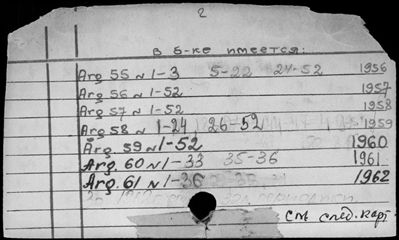 2
в б-ке имеется:
Arg 55 N 1-3 5-22 24-52 1956
Arg 56 N 1-52 1957
Arg 57 N 1-52 1958
Arg 58 N 1-24 26-52 1959
Arg. 59 N 1-52 1960
Arg. 60 N 1-33 35-36 1961
Arg. 61 N 1-36 1962
См. след. карт.